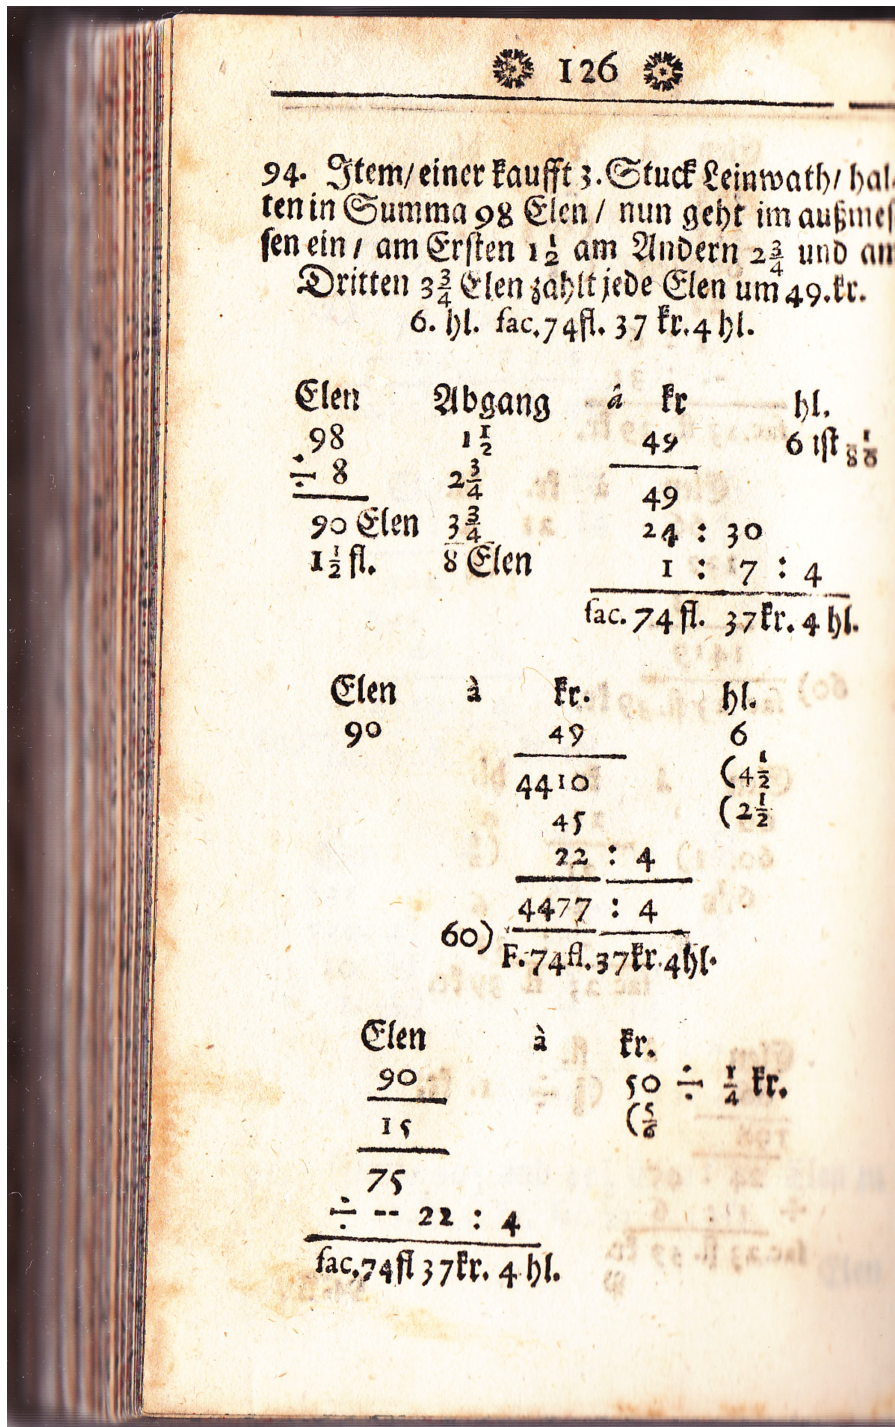 126
94. Item/ einer kaufft 3. Stuck Leinwath/ hal-
ten in Summa 98 Elen/ nun geht im außmes
sen ein/ am Ersten 1 1/2 am Andern 2 3/4 und am
Dritten 3 3/4 Elen zahlt jede Elen um 49. kr.
6. hl. fac. 74 fl. 37 kr. 4 hl.
Elen Abgang â kr hl.
98 1 1/2 49 6 ist
÷ 8 2 3/4 49
90 Elen 3 3/4 24 : 30
1 1/2 fl. 8 Elen 1 : 7 : 4
fac. 74 fl. 37 kr. 4 hl.
Elen à kr. hl.
90 49 6
4410 (4 1/2
45 (2 1/2
22 : 4
4477 : 4
60) F. 74 fl. 37 kr. 4 hl.
Elen à kr.
90 50 ÷ 1/4 kr.
15 (5/6
75
÷ -- 22 : 4
fac. 74 fl 37 kr. 4 hl.